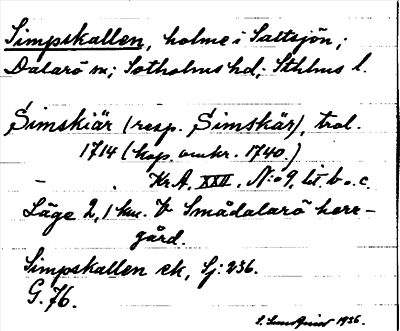 Simpskallen, holme i Saltsjön;
Dalarö sn; Sotholms hd; Sthlms l.
Simskiär (resp. Simskär), trol.
1714 (kop. omkr. 1740.)
– Kr.A, XXII, N:o 9, lit. b o. c.
Läge 2,1 km. V Smådalarö herr-
gård.
Simpskallen ek, Sj: 236.
G. 76.
1936.